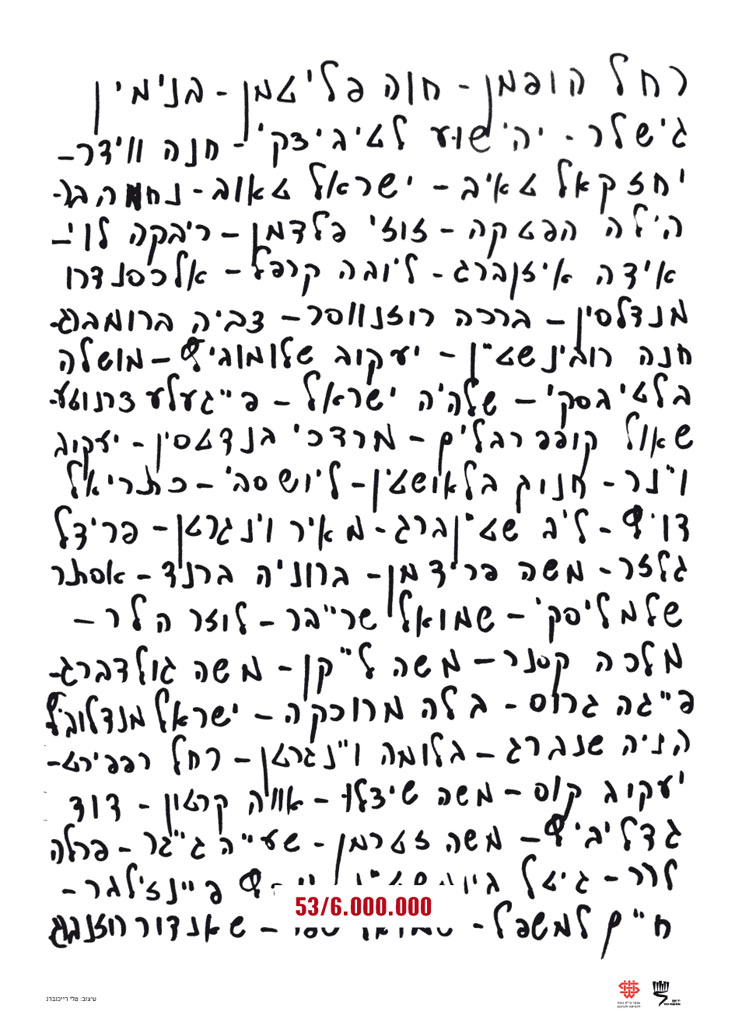 רחל הופמן - חוה פליטמן - בנימין
גישלר - יהישוע לטיביצקי - חנה ווידר -
יחזקאל טאיב - ישראל טאוב - נחמה בר-
הילה הפטקה - זוזי פלדמן - ריבקה לוי -
אידה איזנברג - ליובה קרפל - אלכסנדרו
מנדלסין - ברכה רוזנווסר - צביה ברומברג-
חנה רובינשטיין - יעקוב שלומוגיף - מושלה
בלטיגסקי - שלהיה ישראל - פייגעלע צרנוטע-
שאול קופרבליים - מרדכי בנדטסין - יעקוב
וינר - חנוך בלאושטיין - ליושסבי - כתריאל
דויף - ליב שטיינברג - מאיר וינגרטן - פרידל
גלזר - משה פרידמן - ברוניה ברנד - אסתר
שלמליסקי - שמואל שרייבר - לוזר הלר -
מלכה קסנר - משה לייקן - משה גולדברג-
פייגה גרוס - בלה מרוכקה - ישראל מנדלוביץ
הניה שנברג - בלומה ויינגרטן - רחל רפפירט-
יעקוב קוס - משה שידלו - אוויה קרטין - דוד
גדליביף - משה זטרמן - שעייה גייגר - פרלה
לרר - גיטל פיינזילבר -
חיים למשפל - שאנדור רוזנברג
53/6.000.000
עיצוב: טלי רייכנברג